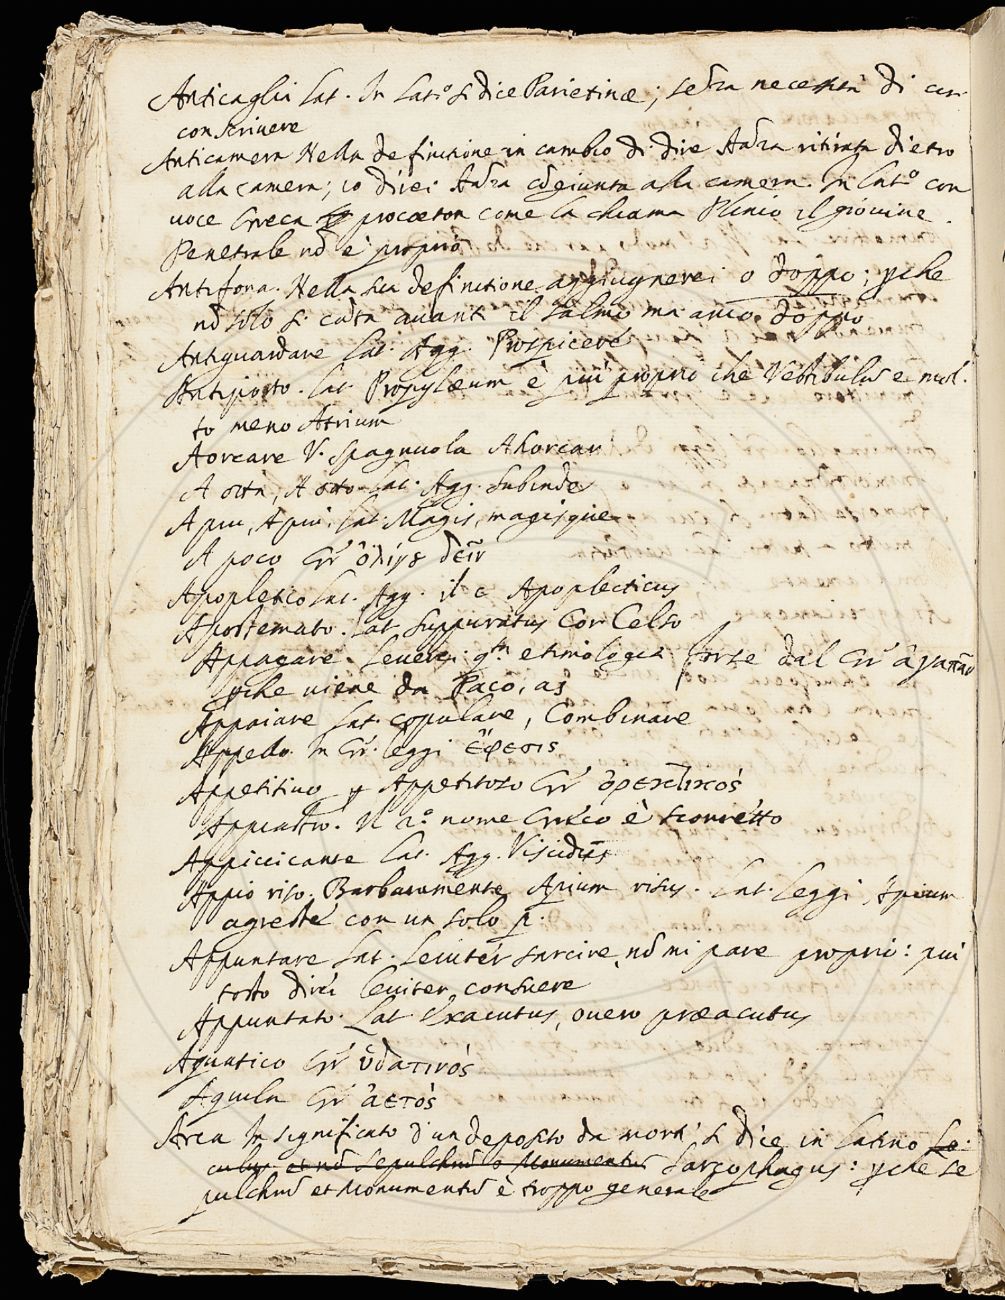 Anticaglia Lat. In Lat.o si dice Parietinæ; sẽza necessità di cir-
conscrivere
Anticamera Nella definitione in cambio di dire Stãza ritirata dietro
alla camera; io direi Stãza cõgiunta alla camera. In Lat.o con
voce Greca procœton come la chiama Plinio il giovine.
Penetrale nõ è proprio
Antifona. Nella sua definitione aggiugnerei o doppo; pche
nõ solo si cãta avanti il salmo ma anco doppo
Antiguardare Lat. Agg. Prospicere
Antiporto. Lat. Propylæum è piu proprio che Vestibulũ e mol-
to meno Atrium
Aorcare V. Spagnuola Ahorcar
A otta, A otta Lat. Agg. Subinde
A piu, A piu. Lat. Magis, magisque
A poco Gr. ὀλίγȣ δεῖν
Apopletico Lat. Agg. il c Apoplecticus
Apostemato. Lat Suppuratus Cor Celso
Appagare. Leverei q.ta etimologia forse dal Gr. ἀγαπᾶν
pche viene da Paco, as
Appaiare Lat. copulare, Combinare
Appello. In Gr. leggi ἔφεσις
Appetitivo p Appetitoso Gr. ὀρεκτικός
Appiattro. Il 2.o nome Greco è scorretto
Appiccicante Lat. Agg. Viscidus
Appio riso. Barbaramente Apium risus. Lat. Leggi Apium
agreste con un solo p.
Appuntare Lat. Leviter sarcire, nõ mi pare proprio: piu
tosto direi leviter consuere
Appuntato. Lat Exacutus, overo præacutus
Aquatico Gr. ὑδατινός
Aquila Gr. ἀετός
Arca In significato d'un deposito da morti si dice in latino Lo-
culus et nõ sepulchrũ o Monumentũ Sarcophagus: pche se
pulchrũ et Monumentũ è troppo generale